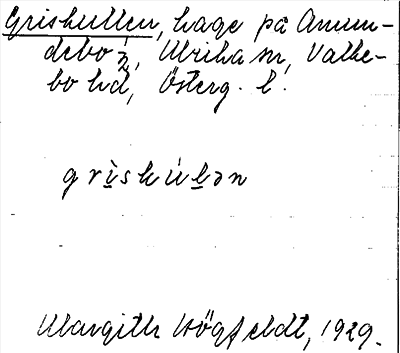 Griskullen, hage på Amun-
debo ½, Ulrika sn, Valke-
bo hd, Österg. l.
grìskúlən
Margith Högfeldt, 1929.